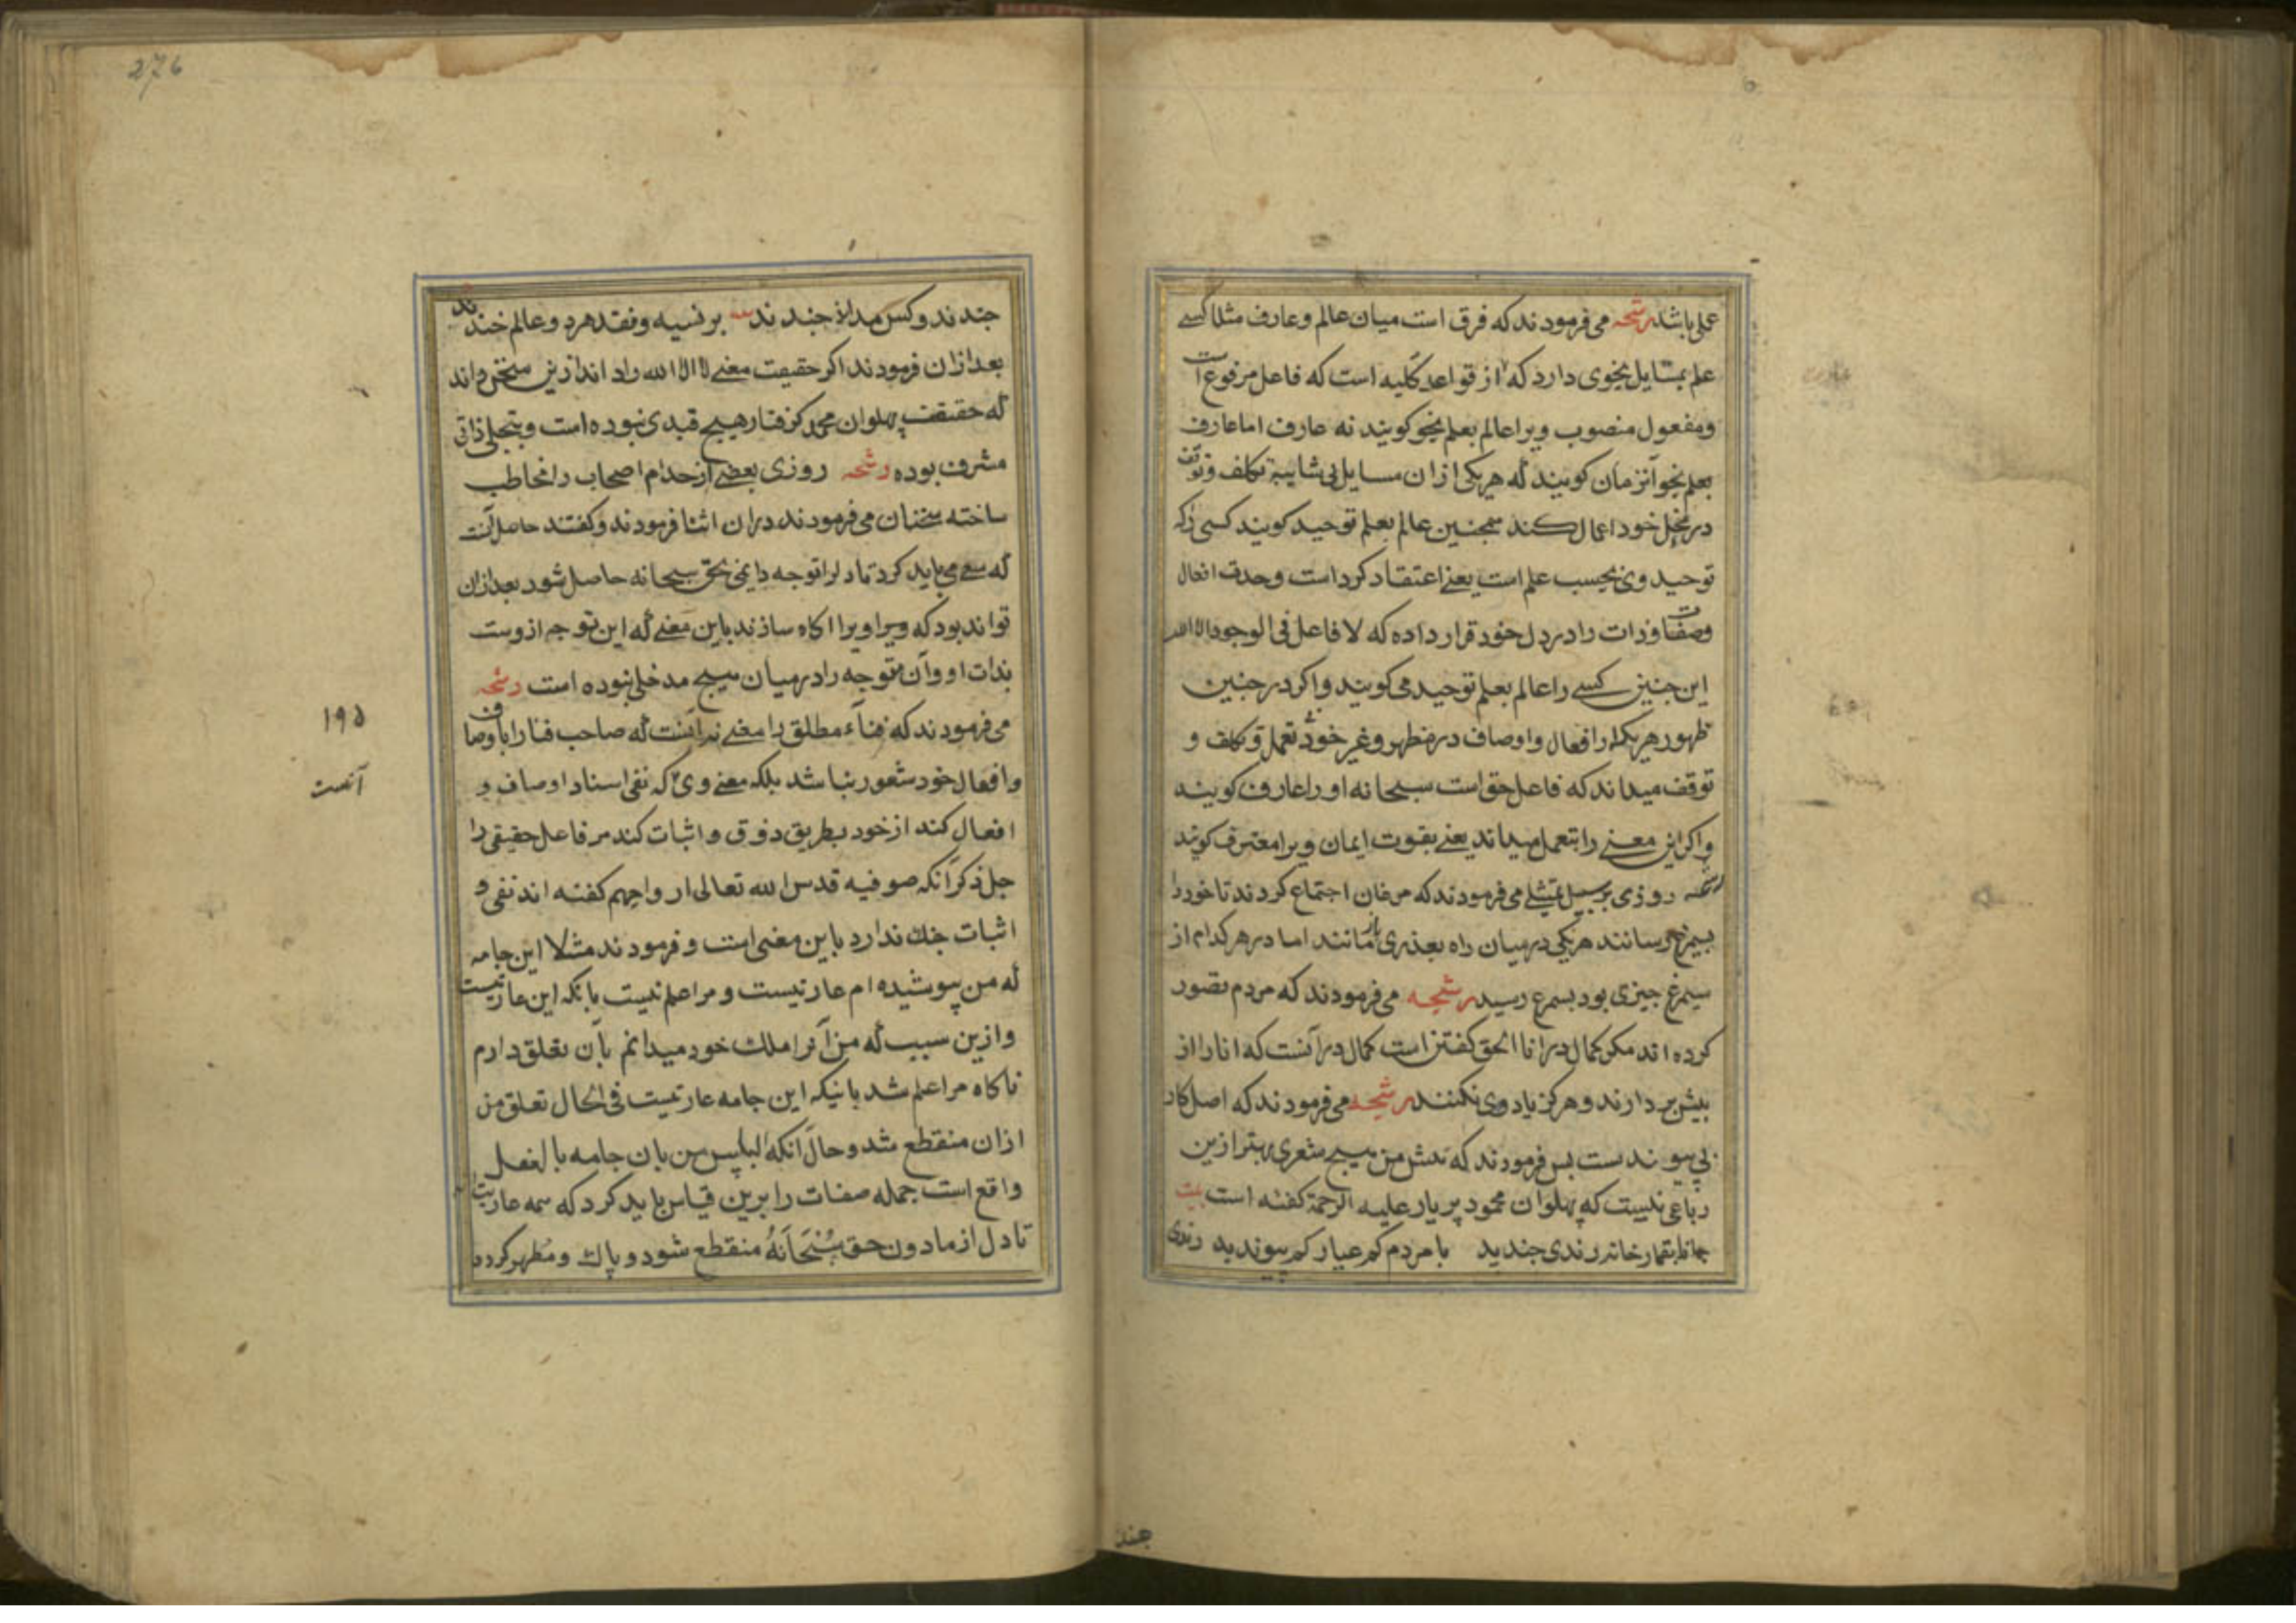 علمی باشد رشحه می فرمودند که فرق است میان عالم و عارف مثلا کسی
علم بمسایل نحوی دارد که از قواعد کلیه است که فاعل مرفوع است
ومفعول منصوب ویرا عالم بعلم نحو کویند نه عارف اما عارف
بعلم نحو آنزمان کویند که هریکی ازان مسایل بی شایبۀ تکلف و توقف
در محل خود اعمال کند همجنین عالم بعلم توحید کویند کسی را که
توحید وی بحسب علم است یعنی اعتقاد کرد است وحدت افعال
وصفات وذات را در دل خود قرار داده که لا فاعل فی الوجود الا الله
این جنین کسی را عالم بعلم توحید می کویند واکر در جنین
ظهور هریک را افعال واوصاف در مظهر وغیر خود بی تعمل و تکلف و
توقف میداند که فاعل حق است سبحانه او را عارف کویند
واکر این معنی را بتعمل میداند یعنی بقوت ایمان ویرا معترف کویند
رشحه روزی بر سبیل تمثیلی می فرمودند که مرغان اجتماع کردند تا خود را
بسیمرغ رسانند هریکی در میان راه بعذری باز مانند اما در هر کدام از
سیمرغ جیزی بود بسیمرغ رسید رشحه می فرمودند که مردم تصور
کرده اند مکر کمال در انا الحق کفتن است کمال در آنست که انا را از
بیش بردارند وهرکز یاد وی نکنند رشحه می فرمودند که اصل کار
بی پیوندست بس فرمودند که بیش من هیج شعری بهتر ازین
رباعی نیست که پهلوان محمود پریار علیه الرحمة کفته است بیت
بقمارخانه رندی جندید با مردم کم عیار کم پیوندید رندی
جند
276
جندند وکس نداند جندند بر نسیه ونقد هر دو عالم خندند
بعد ازان فرمودند اکر حقیقت معنی لا اله الا الله را داند ازین سخن داند
که حقیقت پهلوان محمد کرفتار هیج قیدی نبوده است وبتجلی ذاتی
مشرف بوده رشحه روزی بعضی از خدام اصحاب را مخاطب
ساخته سخنان می فرمودند دران اثنا فرمودند وکفتند حاصل آنست
که سعی می باید کرد تا دل را توجه دایمی بحق سبحانه حاصل شود بعد ازان
تواند بود که ویرا ویرا اکاه سازند باین معنی که این توجه ازوست
بذات او وآن متوجه را در میان هیج مدخلی نبوده است رشحه
می فرمودند که فناء مطلق را معنی نه آنست که صاحب فنا را باوصاف
وافعال خود شعور نباشد بلکه معنی وی که نفی اسناد اوصاف و
افعال کند از خود بطریق ذوق واثبات کند مر فاعل حقیقی را
جل ذکره آنکه صوفیه قدس الله تعالی ارواحهم کفته اند نفی و
اثبات جنك ندارد باین معنی است وفرمودند مثلا این جامه
که من پوشیده ام عاریتست ومرا علم نیست بانکه این عاریتست
وازین سبب که من آنرا ملك خود میدانم بآن تعلق دارم
ناکاه مرا علم شد بانیکه این جامه عاریتست فی الحال تعلق من
ازان منقطع شد وحال آنکه لباس من بان جامه بالفعل
واقع است جمله صفات را برین قیاس باید کرد که همه عاریت
تا دل از مادون حق سُبْحَانَهُ منقطع شود و پاك ومطهر کردد
195
آنست